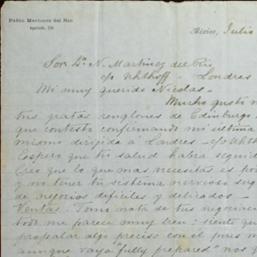 Pablo Martinez del Rio
Mexico, Julio
Sor Dn N. Martinez del Rio
c/o Uhthoff - Londres
Mi muy querido Nicolas -
Mucho gusto
tus gratos renglones de Edinburgo
que contesto confirmando mi última
mismo dirijida á Londres - c/o Uhthoff
Espero que tu salud habra seguido
Creo que lo que mas necesitas es
y no tener tu sistema nervioso
de negocios dificiles y delicados -
Ventas. Tomo nota de tus
me parece muy bien i siente que
propalar algo preciso con el
aunque vaya "fully prepared" nos